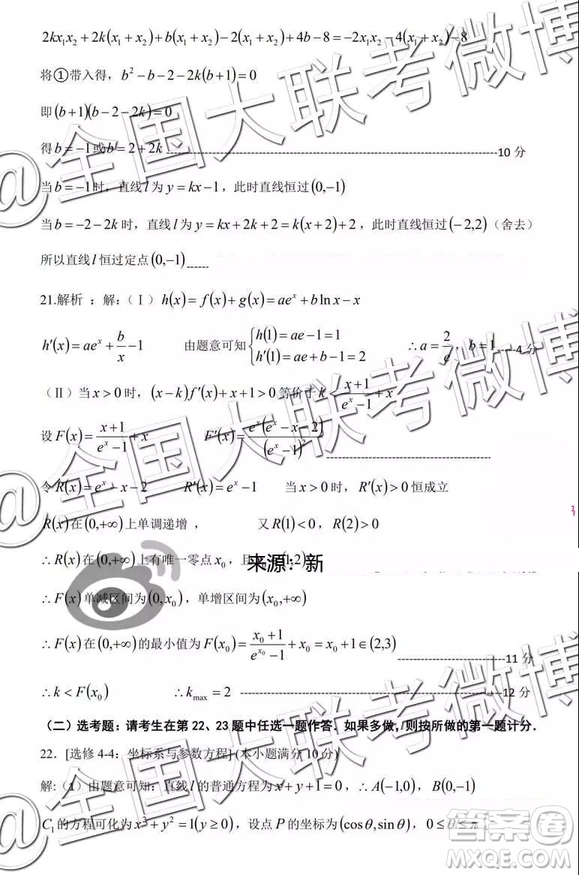 2kx₁x₂+2k(x₁+x₂)+b(x₁+x₂)−2(x₁+x₂)+4b−8=−2x₁x₂−4(x₁+x₂)−8
将①带入得, b²−b−2−2k(b+1)=0
即(b+1)(b−2−2k)=0
得b=−1或b=2+2k ------10 分
当b=−1时, 直线l为y=kx−1, 此时直线恒过(0,−1)
当b=−2−2k时, 直线l为y=kx+2k+2=k(x+2)+2, 此时直线恒过(−2,2) (舍去)
所以直线l恒过定点(0,−1)
21.解析 : 解: (Ⅰ) h(x)=f(x)+g(x)=ae^x+b ln x−x
h′(x)=ae^x+b/x−1 由题意可知{h(1)=ae−1=1 h′(1)=ae+b−1=2 ∴a=2/e, b=1 ---4 分
(Ⅱ) 当x>0时, (x−k)f′(x)+x+1>0等价于k<(x+1)/(e^x−1)+x
设F(x)=(x+1)/(e^x−1)+x F′(x)=e^x(e^x−x−2)/(e^x−1)²
令R(x)=e^x−x−2 R′(x)=e^x−1 当x>0时, R′(x)>0恒成立
∴R(x)在(0,+∞)上单调递增 , 又R(1)<0, R(2)>0
∴R(x)在(0,+∞)上有唯一零点x₀, 且 (1,2) 来源：新
∴F(x)单减区间为(0,x₀), 单增区间为(x₀,+∞)
∴F(x)在(0,+∞)的最小值为F(x₀)=(x₀+1)/(e^x₀−1)+x₀=x₀+1∈(2,3) ------11 分
∴k<F(x₀) ∴k_max=2 ------12 分
(二) 选考题: 请考生在第 22、23 题中任选一题作答. 如果多做, 则按所做的第一题计分.
22. [选修 4-4: 坐标系与参数方程] (本小题满分 10 分)
解: (1) 由题意可知: 直线l的普通方程为x+y+1=0, ∴A(−1,0), B(0,−1)
C₁的方程可化为x²+y²=1(y≥0), 设点P的坐标为(cosθ,sinθ), 0≤θ≤π
@全国大联考微博
@全国大联考微博
@全国大联考微博
答案圈
MXQE.COM